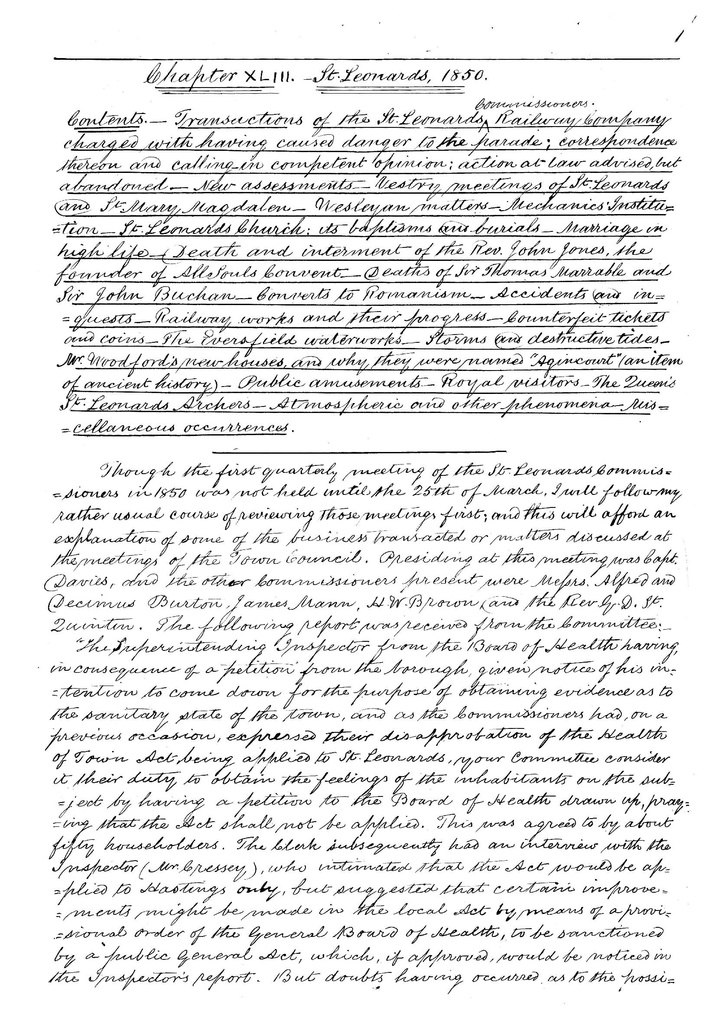 1
Chapter XLIII. - St. Leonards, 1850.
Commissioners.
Contents. — Transactions of the St. Leonards ^ Railway Company
charged with having caused danger to the parade; correspondence
thereon and calling in competent opinion; action at law advised, but
abandoned — New assessments — Vestry meetings of St. Leonards
and St. Mary Magdalen — Wesleyan matters — Mechanics' Institu=
=tion — St. Leonards Church; its baptisms and burials — Marriage in
high life — Death and interment of the Rev. John Jones, the
founder of All Souls Convent — Deaths of Sir Thomas Marrable and
Sir John Buchan — Converts to Romanism — Accidents and in=
=quests — Railway works and their progress — Counterfeit tickets
and coins — The Eversfield waterworks — Storms and destructive tides —
Mr. Woodford's new houses, and why they were named "Agincourt" (an item
of ancient history) — Public amusements — Royal visitors — The Queen's
St. Leonards Archers — Atmospheric and other phenomena — Mis=
=cellaneous occurrences.
Though the first quarterly meeting of the St. Leonards Commis=
=sioners in 1850 was not held until the 25th of March, I will follow my
rather usual course of reviewing those meetings first; and this will afford an
explanation of some of the business transacted or matters discussed at
the meetings of the Town Council. Presiding at this meeting was Capt.
Davies, and the other Commissioners present were Messrs. Alfred and
Decimus Burton, James Mann, H. W. Brown, and the Rev. G. D. St.
Quintin. The following report was received from the Committee:-
"The Superintending Inspector from the Board of Health having,
in consequence of a petition from the borough, given notice of his in=
=tention to come down for the purpose of obtaining evidence as to
the sanitary state of the town, and as the Commissioners had, on a
previous occasion, expressed their disapprobation of the Health
of Town Act being applied to St. Leonards, your Committee consider
it their duty to obtain the feelings of the inhabitants on the sub=
=ject by having a petition to the Board of Health drawn up, pray=
=ing that the Act shall not be applied. This was agreed to by about
fifty householders. The Clerk subsequently had an interview with the
Inspector (Mr. Cressey), who intimated that the Act would be ap=
=plied to Hastings only, but suggested that certain improve=
=ments might be made in the local Act by means of a provi=
=sional order of the General Board of Health, to be sanctioned
by a public General Act, which, if approved, would be noticed in
the Inspector's report. But doubts having occurred as to the possi=